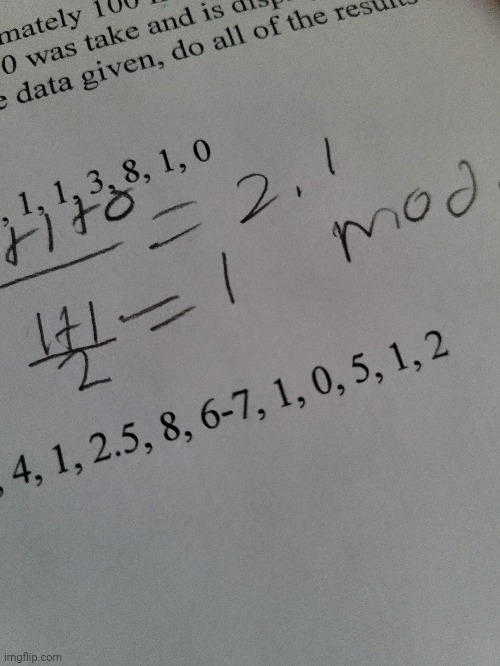 mately 100
0 was take and is disp
data given, do all of the results
, 1, 1, 3, 8, 1, 0
+1+0 = 2.1
1+1 = 1 mod
2
, 4, 1, 2.5, 8, 6-7, 1, 0, 5, 1, 2
imgflip.com